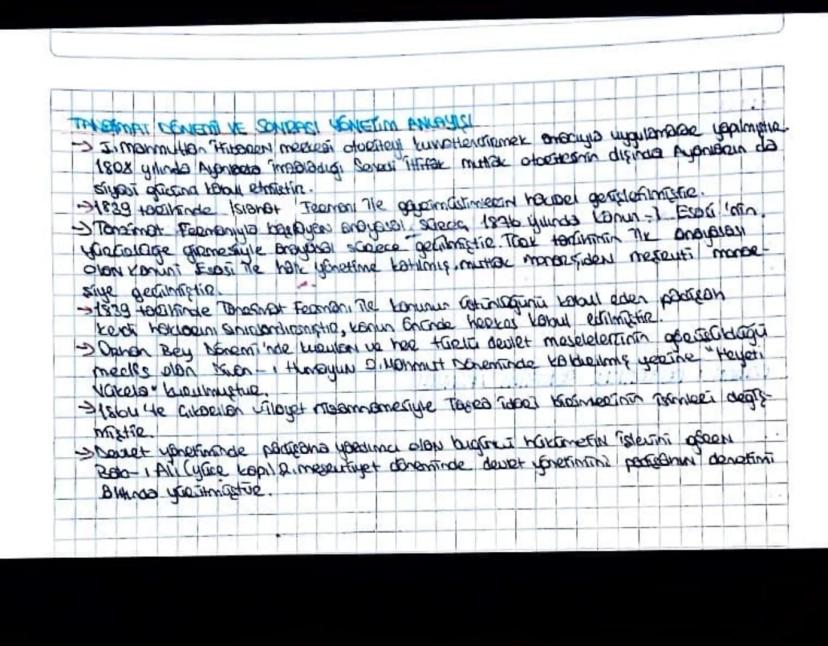 TANZİMAT DÖNEMİ VE SONRASI YÖNETİM ANLAYIŞI
→ I. Mahmuttan itibaren merkezi otoriteyi kuvvetlendirmek amacıyla uygulamalar yapılmıştır.
1808 yılında Ayanlarla imzaladığı Senedi ittifak mutlak otoritesinin dışında Ayanların da
siyasi gücünü kabul etmiştir.
→ 1839 tarihinde Islahat Fermanı ile gayrimüslimlerin hakları genişletilmiştir.
→ Tanzimat Fermanıyla başlayan anayasal sürece, 1876 yılında Kanun-ı Esasi 'nin
yürürlülüğe girmesiyle anayasal sürece geçilmiştir. Türk tarihinin ilk anayasası
olan Kanuni Esasi ile halk yönetime katılmış, mutlak monarşiden meşruti monar-
şiye geçilmiştir.
→ 1839 tarihinde Tanzimat Fermanı ile kanunun üstünlüğünü kabul eden padişah
kendi haklarını sınırlandırmıştır, kanun önünde herkes kabul edilmiştir.
→ Orhan Bey Dönemi'nde kurulan ve her türlü devlet meselelerinin görüşüldüğü
meclis olan Divan-ı Humayun 2. Mahmut Döneminde kaldırılmış yerine "Heyeti
Vükela" kurulmuştur.
→ 1864'te çıkarılan vilayet nizamnamesiyle Taşra idari birimlerinin isimleri değiş-
miştir.
→ Devlet yönetiminde padişaha yardımcı olan bugünkü hükümetin işlevini gören
Bab-ı Ali (yüce kapı) 2. meşrutiyet döneminde devlet yönetimini padişahın denetimi
altında yürütmüştür.